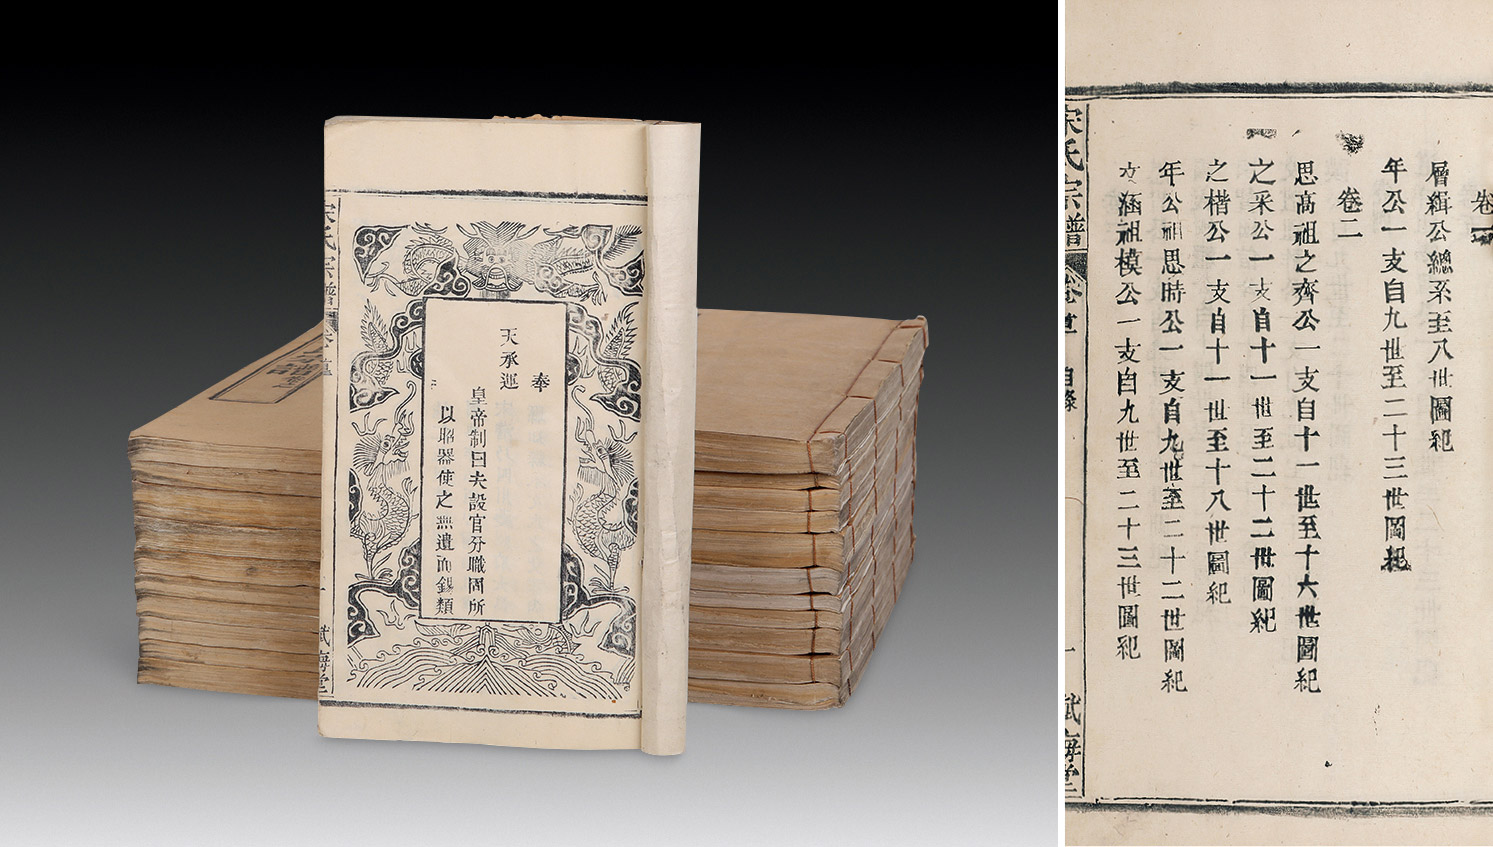 奉
天承運
皇帝制曰夫設官分職固所
以昭器使之無遺而錫類
宋氏宗譜
卷首
賦海堂
卷一
層緝公總系至八世圖紀
年公一支自九世至二十三世圖紀
卷二
思高祖之齊公一支自十一世至十六世圖紀
之采公一支自十一世至二十二世圖紀
之楷公一支自十一世至十八世圖紀
年公祖思時公一支自九世至二十二世圖紀
文涵祖模公一支自九世至二十三世圖紀
宋氏宗譜
卷首
目錄
一
賦海堂